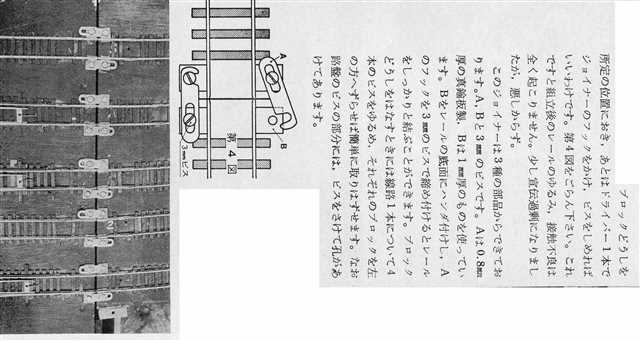 ブロックどうしを
所定の位置におき,あとはドライバー1本で
ジョイナーのフックをかけ,ビスをしめれば
いいわけです。第4図をごらん下さい。これ
ですと組立後のレールのゆるみ,接触不良は
全く起こりません。少し宣伝過剰になりまし
たが,悪しからず。
このジョイナーは3種の部品からできてお
ります。A,Bと3㎜のビスです。Aは0.8㎜
厚の真鍮板製,Bは1㎜厚のものを使ってい
ます。Bをレールの底面にハンダ付けし,A
のフックを3㎜のビスで締め付けるとレール
をしっかりと結ぶことができます。ブロック
どうしをはなすときには線路1本について4
本のビスをゆるめ,それぞれのブロックを左
の方へずらせば簡単に取りはずせます。なお
路盤のビスの部分には,ビスをさけて孔があ
けてあります。
A
B
第4図
3㎜ビス
2